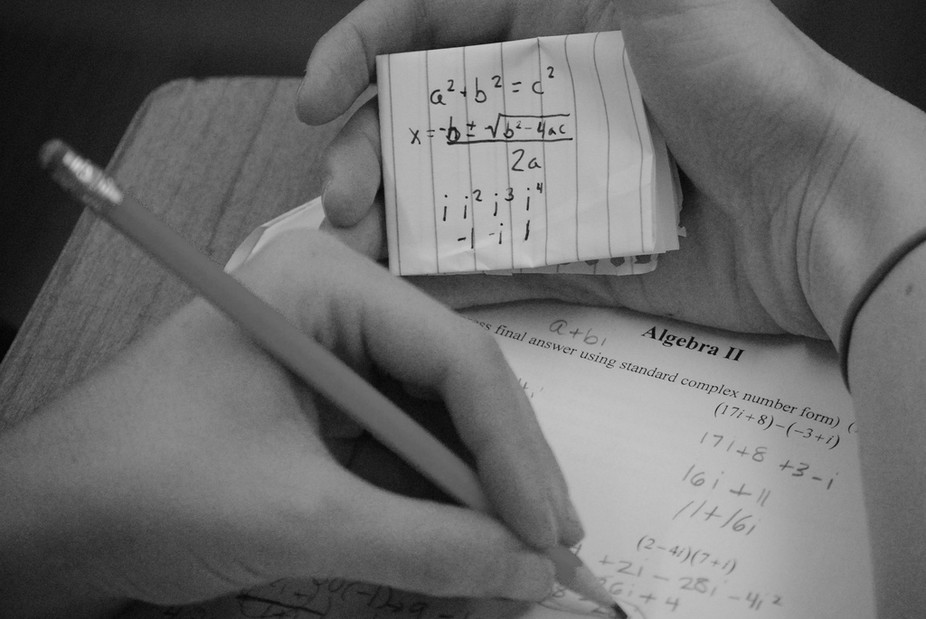 a² + b² = c²
x = -b ± √b² - 4ac
2a
i i² i³ i⁴
-1 -i 1
a+bi
Algebra II
final answer using standard complex number form) (
(17i+8)-(-3+i)
17i+8 +3-i
16i + 11
11+16i
(2-4i)(7+i)
+2i - 28i - 4i²
26i + 4